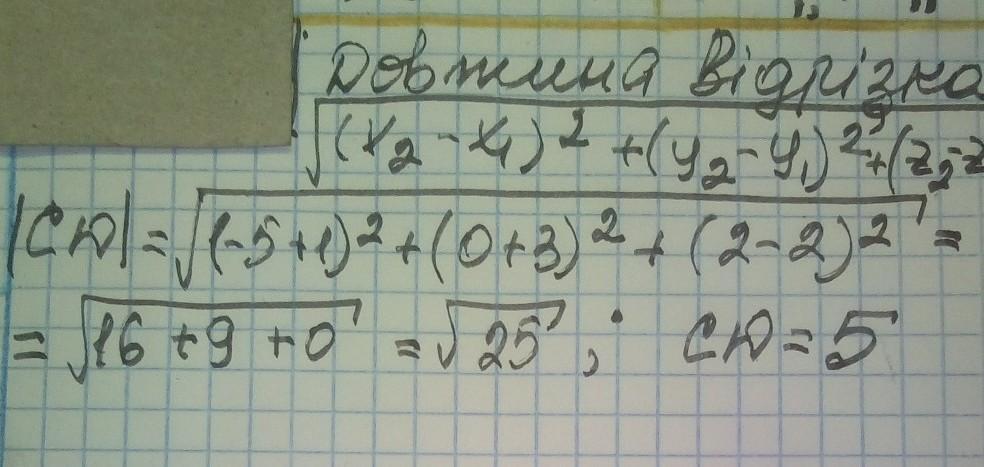 Довжина відрізка
√(x₂ - x₁)² + (y₂ - y₁)² + (z₂ - z
|CD| = √(-5+1)² + (0+3)² + (2-2)² =
= √16 + 9 + 0 = √25 ; CD = 5